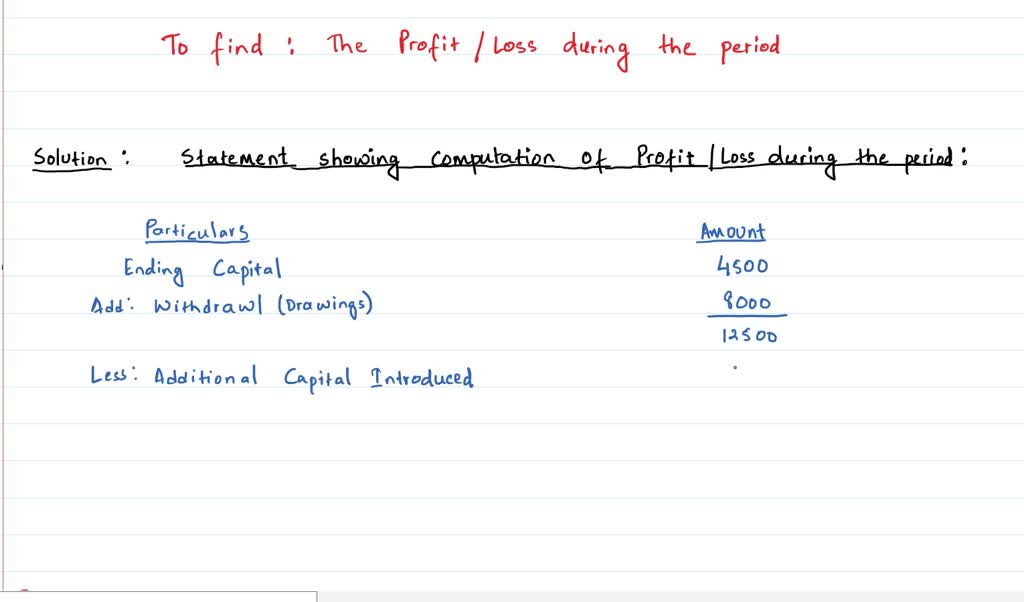 To find : The Profit / Loss during the period
Solution : Statement showing computation of Profit / Loss during the period :
Particulars Amount
Ending Capital 4500
Add: Withdrawl (Drawings) 8000
12500
Less: Additional Capital Introduced